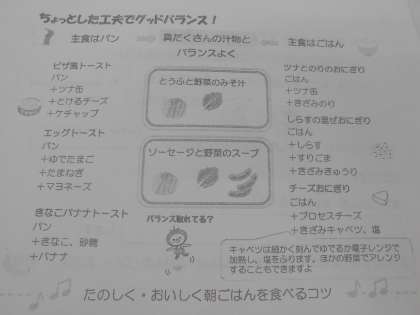 ちょっとした工夫でグッドバランス！
主食はパン
具だくさんの汁物と
バランスよく
主食はごはん
ピザ風トースト
パン
＋ツナ缶
＋とけるチーズ
＋ケチャップ
エッグトースト
パン
＋ゆでたまご
＋たまねぎ
＋マヨネーズ
きなこバナナトースト
パン
＋きなこ、砂糖
＋バナナ
とうふと野菜のみそ汁
ソーセージと野菜のスープ
バランス取れてる？
ツナとのりのおにぎり
ごはん
＋ツナ缶
＋きざみのり
しらすの混ぜおにぎり
ごはん
＋しらす
＋すりごま
＋きざみきゅうり
チーズおにぎり
ごはん
＋プロセスチーズ
＋きざみキャベツ、塩
キャベツは細かく刻んでゆでるか電子レンジで
加熱し、塩をふります。ほかの野菜でアレンジ
することもできますよ
たのしく・おいしく朝ごはんを食べるコツ